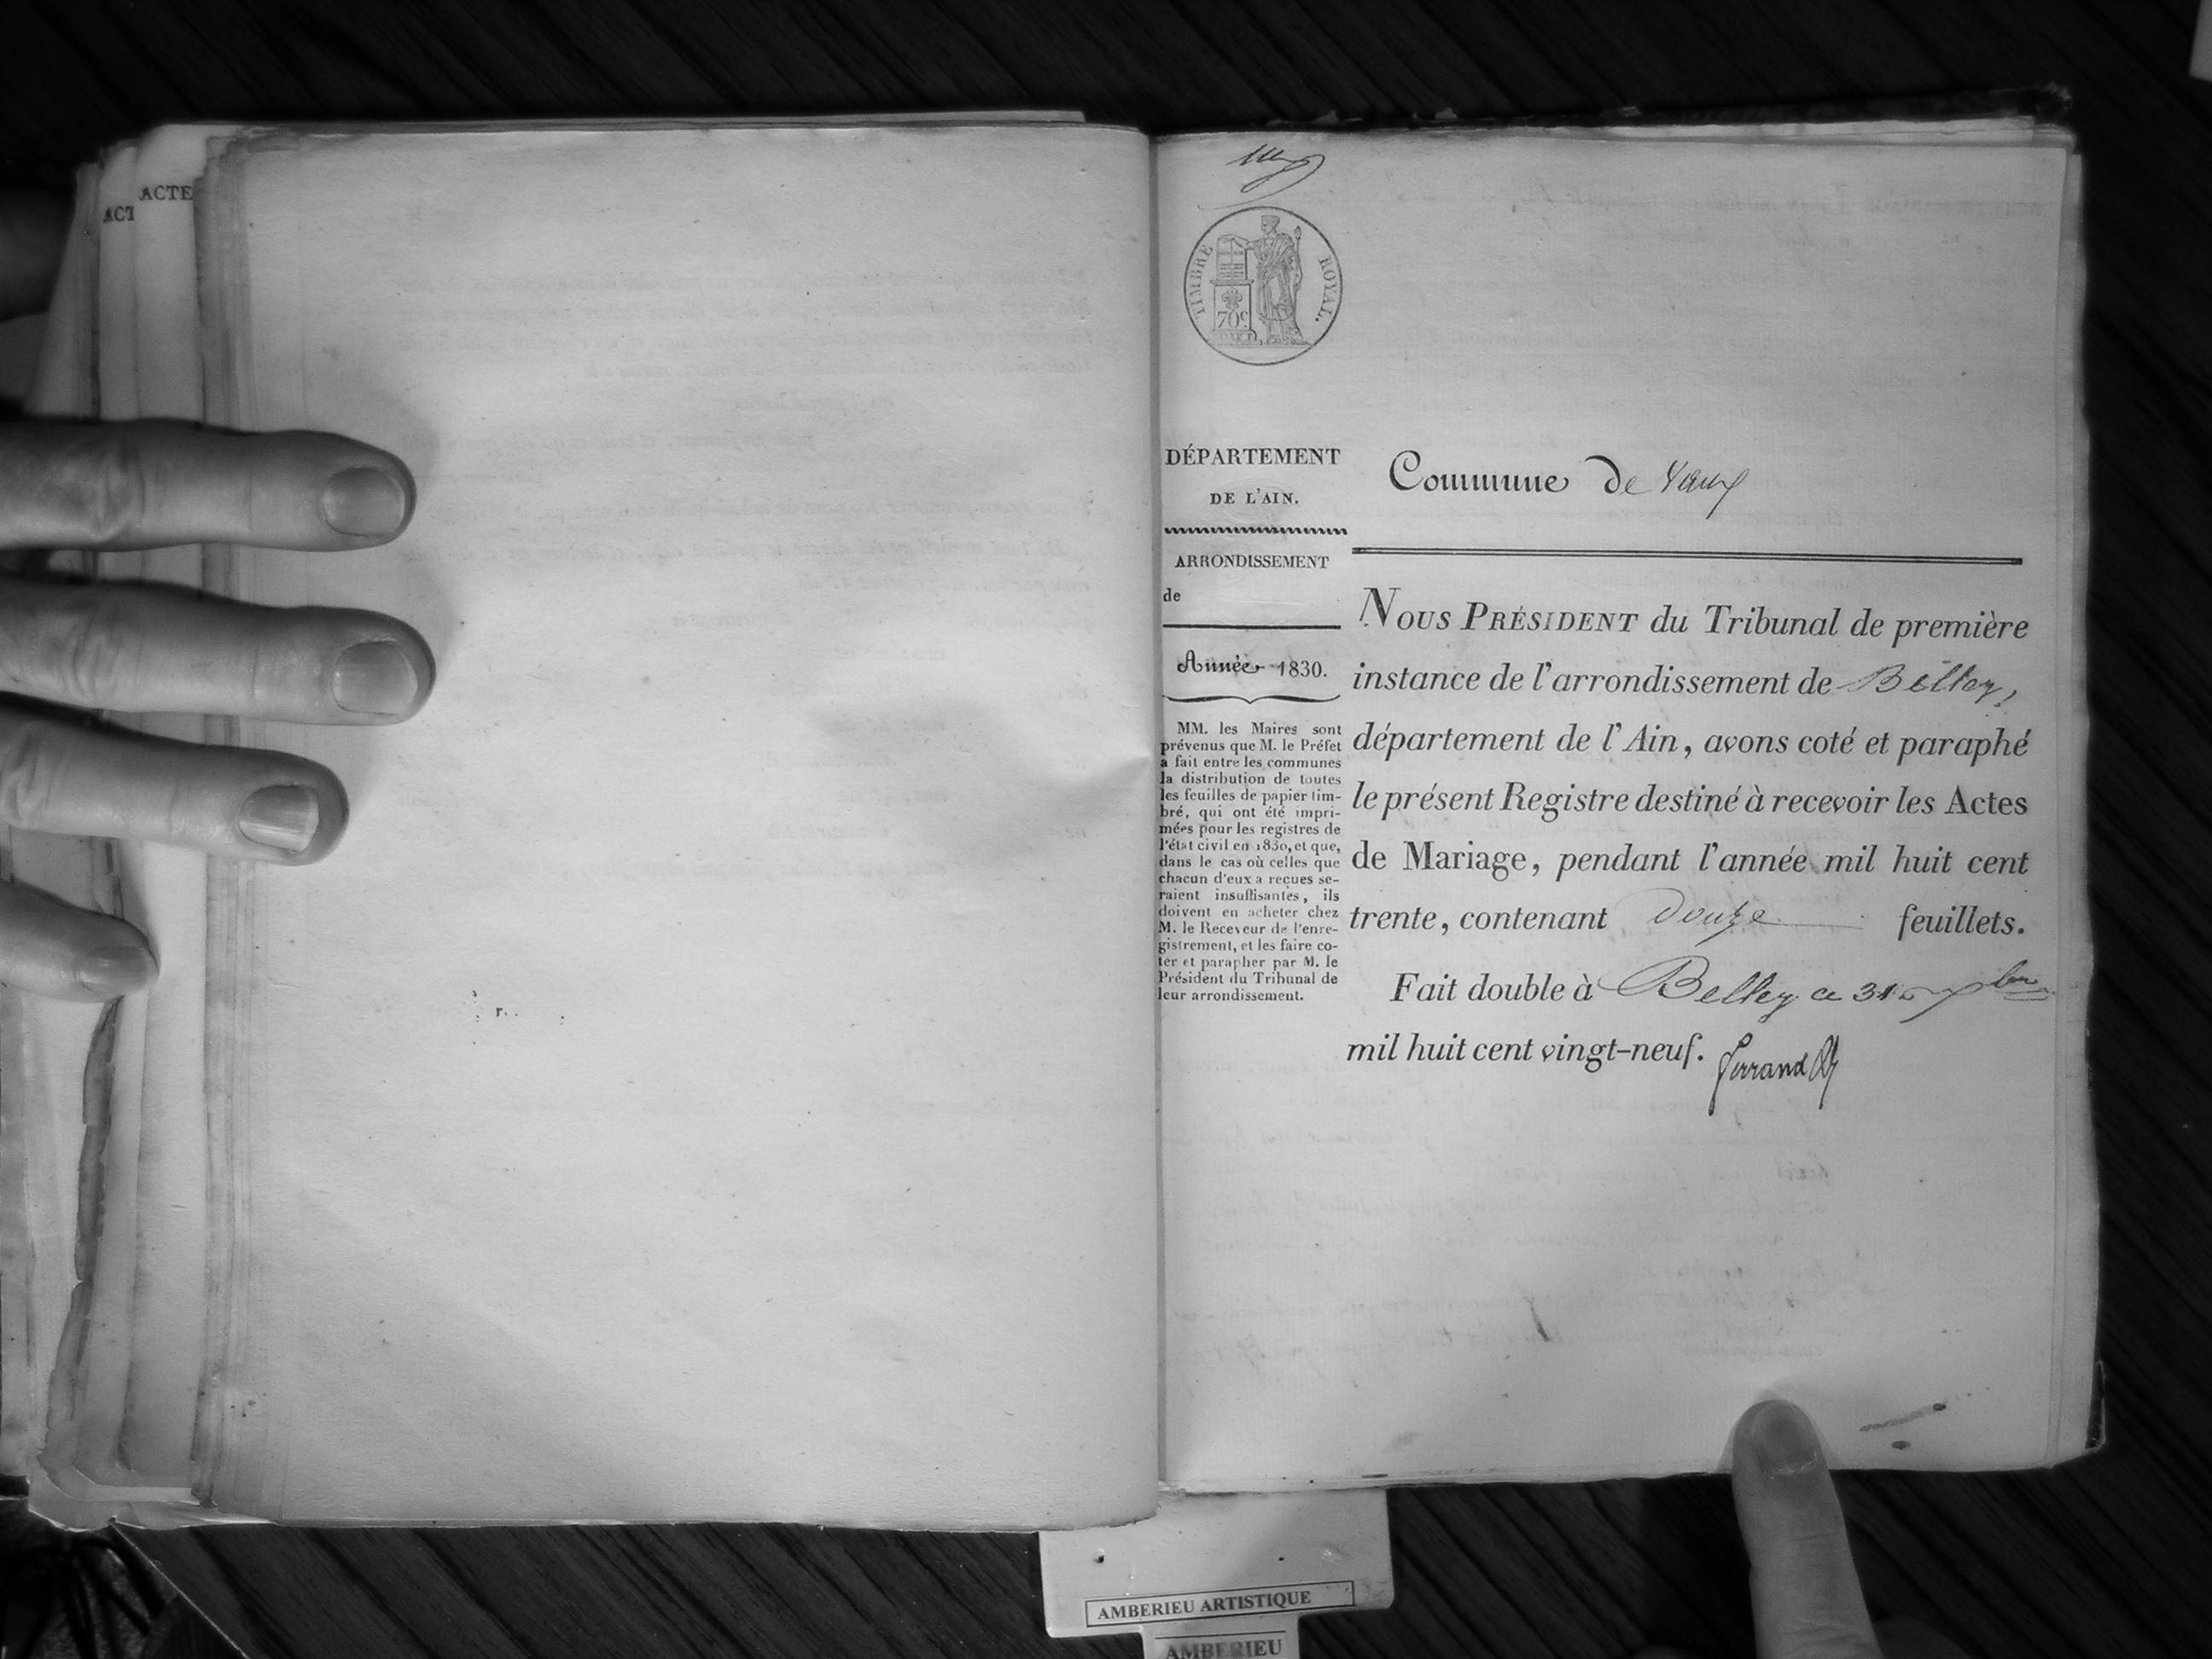 ACTE
ACT
TIMBRE ROYAL.
70c
DÉPARTEMENT
DE L'AIN.
Commune de Vaux
ARRONDISSEMENT
de
Année 1830.
MM. les Maires sont
prévenus que M. le Préfet
a fait entre les communes
la distribution de toutes
les feuilles de papier tim-
bré, qui ont été impri-
mées pour les registres de
l'état civil en 1830, et que,
dans le cas où celles que
chacun d'eux a reçues se-
raient insuffisantes, ils
doivent en acheter chez
M. le Receveur de l'enre-
gistrement, et les faire co-
ter et parapher par M. le
Président du Tribunal de
leur arrondissement.
NOUS PRÉSIDENT du Tribunal de première
instance de l'arrondissement de Belley,
département de l'Ain, avons coté et paraphé
le présent Registre destiné à recevoir les Actes
de Mariage, pendant l'année mil huit cent
trente, contenant douze feuillets.
Fait double à Belley ce 31 xbre
mil huit cent vingt-neuf.
AMBERIEU ARTISTIQUE
AMBERIEU